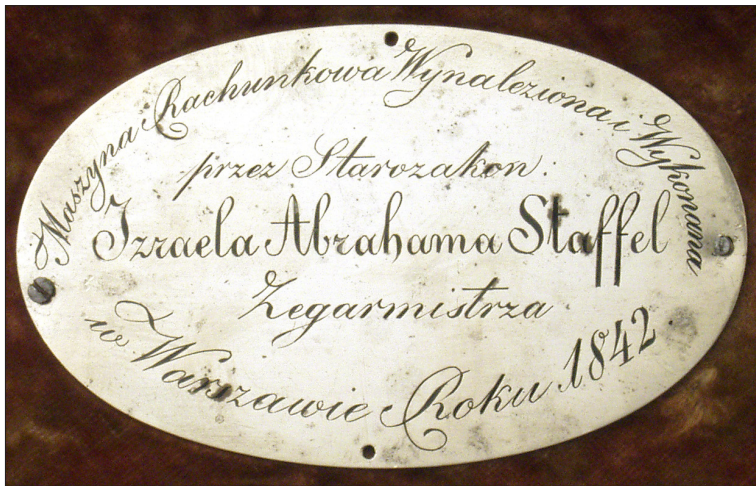 Maszyna Rachunkowa Wynaleziona i Wykonana
przez Starozakon:
Izraela Abrahama Staffel
Zegarmistrza
w Warszawie Roku 1842.